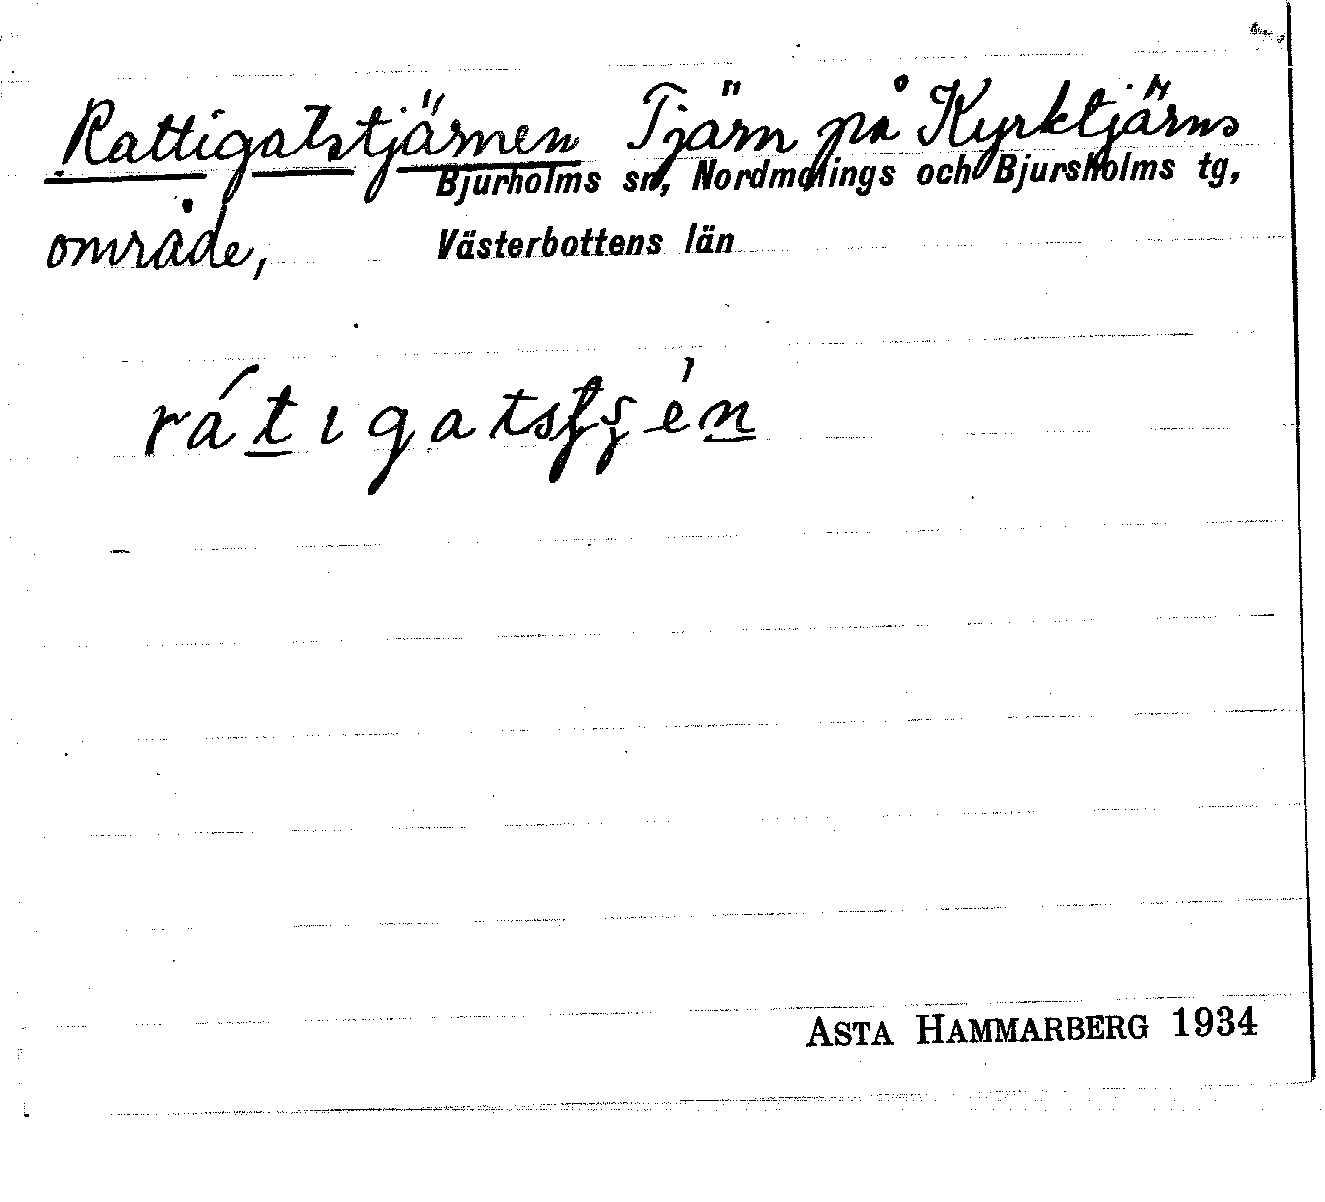 Rattigatstjärnen Tjärn på Kyrktjärns
Bjurholms sn, Nordmalings och Bjursholms tg,
område, Västerbottens län
rátigatsʃʒèn
ASTA HAMMARBERG 1934